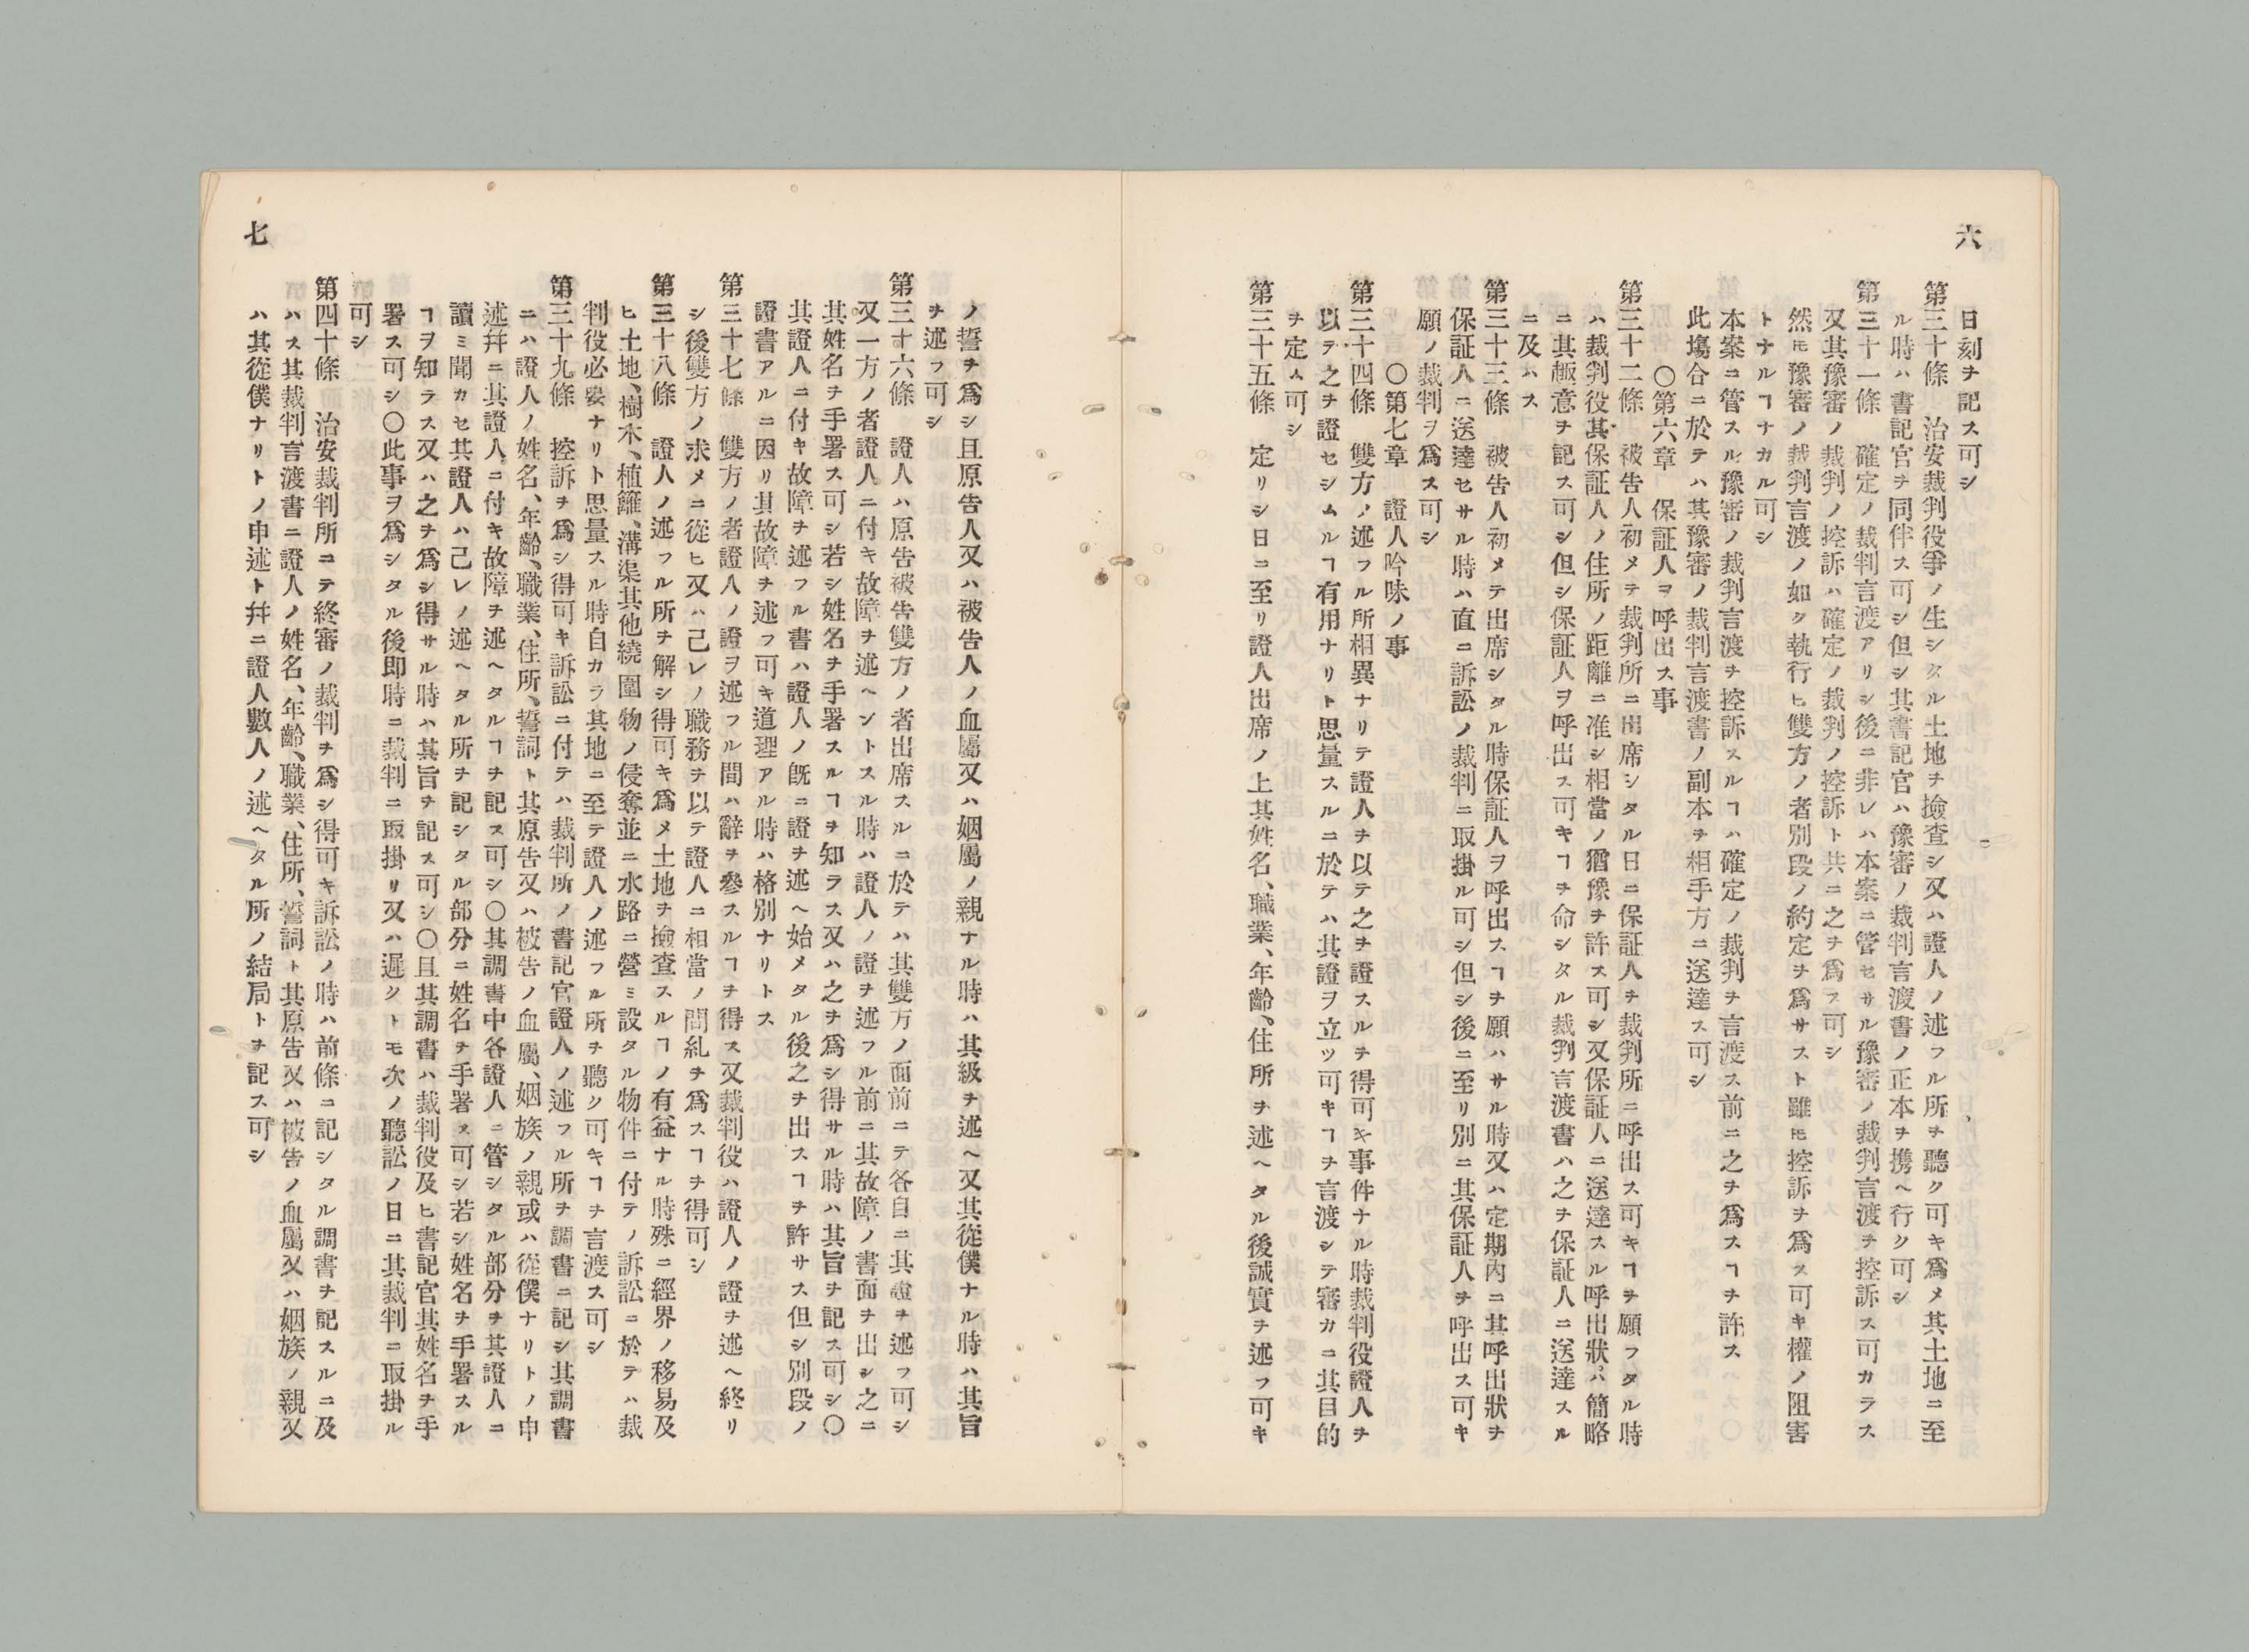 六
日刻ヲ記ス可シ
第三十條　治安裁判役爭ノ生シタル土地ヲ撿査シ又ハ證人ノ述フル所ヲ聽ク可キ爲メ其土地ニ至
ル時ハ書記官ヲ同伴ス可シ但シ其書記官ハ豫審ノ裁判言渡書ノ正本ヲ携ヘ行ク可シ
第三十一條　確定ノ裁判言渡アリシ後ニ非レハ本案ニ管セサル豫審ノ裁判言渡ヲ控訴ス可カラス
又其豫審ノ裁判ノ控訴ハ確定ノ裁判ノ控訴ト共ニ之ヲ爲ス可シ
然𪜈豫審ノ裁判言渡ノ如ク執行ヒ雙方ノ者別段ノ約定ヲ爲サスト雖𪜈控訴ヲ爲ス可キ權ノ阻害
トナルヿナカル可シ
本案ニ管スル豫審ノ裁判言渡ヲ控訴スルヿハ確定ノ裁判ヲ言渡ス前ニ之ヲ爲スヿヲ許ス
此塲合ニ於テハ其豫審ノ裁判言渡書ノ副本ヲ相手方ニ送達ス可シ
〇第六章　保証人ヲ呼出ス事
第三十二條　被告人初メテ裁判所ニ出席シタル日ニ保証人ヲ裁判所ニ呼出ス可キヿヲ願フタル時
ハ裁判役其保証人ノ住所ノ距離ニ准シ相當ノ猶豫ヲ許ス可シ又保証人ニ送達スル呼出狀ハ簡略
ニ其趣意ヲ記ス可シ但シ保証人ヲ呼出ス可キヿヲ命シタル裁判言渡書ハ之ヲ保証人ニ送達スル
ニ及ハス
第三十三條　被告人初メテ出席シタル時保証人ヲ呼出スヿヲ願ハサル時又ハ定期內ニ其呼出狀ヲ
保証人ニ送達セサル時ハ直ニ訴訟ノ裁判ニ取掛ル可シ但シ後ニ至リ別ニ其保証人ヲ呼出ス可キ
願ノ裁判ヲ爲ス可シ
〇第七章　證人吟味ノ事
第三十四條　雙方ノ述フル所相異ナリテ證人ヲ以テ之ヲ證スルヲ得可キ事件ナル時裁判役證人ヲ
以テ之ヲ證セシムルヿ有用ナリト思量スルニ於テハ其證ヲ立ツ可キヿヲ言渡シテ審カニ其目的
ヲ定ム可シ
第三十五條　定リシ日ニ至リ證人出席ノ上其姓名、職業、年齡、住所ヲ述ヘタル後誠實ヲ述フ可キ
ノ誓ヲ爲シ且原告人又ハ被告人ノ血屬又ハ姻屬ノ親ナル時ハ其級ヲ述ヘ又其從僕ナル時ハ其旨
ヲ述フ可シ
第三十六條　證人ハ原告被告雙方ノ者出席スルニ於テハ其雙方ノ面前ニテ各自ニ其證ヲ述フ可シ
又一方ノ者證人ニ付キ故障ヲ述ヘントスル時ハ證人ノ證ヲ述フル前ニ其故障ノ書面ヲ出シ之ニ
其姓名ヲ手署ス可シ若シ姓名ヲ手署スルヿヲ知ラス又ハ之ヲ爲シ得サル時ハ其旨ヲ記ス可シ〇
其證人ニ付キ故障ヲ述フル書ハ證人ノ旣ニ證ヲ述ヘ始メタル後之ヲ出スヿヲ許サス但シ別段ノ
證書アルニ因リ其故障ヲ述フ可キ道理アル時ハ格別ナリトス
第三十七條　雙方ノ者證人ノ證ヲ述フル間ハ辭ヲ參スルヿヲ得ス又裁判役ハ證人ノ證ヲ述ヘ終リ
シ後雙方ノ求メニ從ヒ又ハ己レノ職務ヲ以テ證人ニ相當ノ問糺ヲ爲スヿヲ得可シ
第三十八條　證人ノ述フル所ヲ解シ得可キ爲メ土地ヲ撿査スルヿノ有益ナル時殊ニ經界ノ移易及
ヒ土地、樹木、植籬、溝渠其他繞圍物ノ侵奪並ニ水路ニ營ミ設タル物件ニ付テノ訴訟ニ於テハ裁
判役必要ナリト思量スル時自カラ其地ニ至テ證人ノ述フル所ヲ聽ク可キヿヲ言渡ス可シ
第三十九條　控訴ヲ爲シ得可キ訴訟ニ付テハ裁判所ノ書記官證人ノ述フル所ヲ調書ニ記シ其調書
ニハ證人ノ姓名、年齡、職業、住所、誓詞ト其原告又ハ被告ノ血屬、姻族ノ親或ハ從僕ナリトノ申
述幷ニ其證人ニ付キ故障ヲ述ヘタルヿヲ記ス可シ〇其調書中各證人ニ管シタル部分ヲ其證人ニ
讀ミ聞カセ其證人ハ己レノ述ヘタル所ヲ記シタル部分ニ姓名ヲ手署ス可シ若シ姓名ヲ手署スル
ヿヲ知ラス又ハ之ヲ爲シ得サル時ハ其旨ヲ記ス可シ〇且其調書ハ裁判役及ヒ書記官其姓名ヲ手
署ス可シ〇此事ヲ爲シタル後即時ニ裁判ニ取掛リ又ハ遲クトモ次ノ聽訟ノ日ニ其裁判ニ取掛ル
可シ
第四十條　治安裁判所ニテ終審ノ裁判ヲ爲シ得可キ訴訟ノ時ハ前條ニ記シタル調書ヲ記スルニ及
ハス其裁判言渡書ニ證人ノ姓名、年齡、職業、住所、誓詞ト其原告又ハ被告ノ血屬又ハ姻族ノ親又
ハ其從僕ナリトノ申述ト幷ニ證人數人ノ述ヘタル所ノ結局トヲ記ス可シ
七